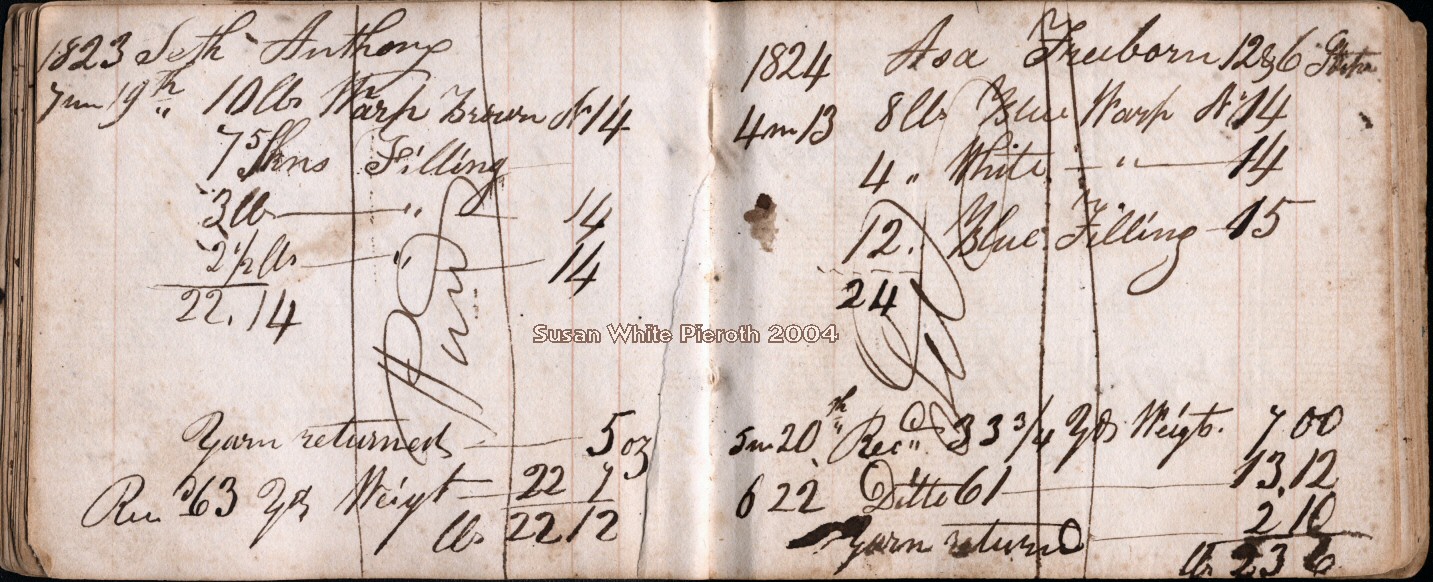 1823 Seth Anthony
7m 19th " 10 lbs Warp Brown No 14
7 Skns Filling
3 lb " 14
2 1/2 lbs " 14
22.14
Paid
Yarn returned 5 oz
Rec'd 63 Yds Weigt 22 7
lbs 22.12
1824 Asa Freeborn 12 & 6
4m 13 8 lbs Blue Warp No 14
4 " White " 14
12. Blue Filling 15
24
5m 20th " Recd 33 3/4 Yds Weigt. 7 00
6 22 Ditto 61 13.12
Yarn return'd 2 10
lb 23 6
Susan White Pieroth 2004